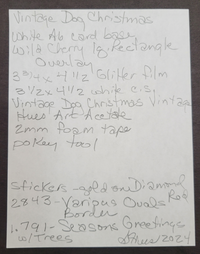 Vintage Dog Christmas
White A6 card base
Wild Cherry lg. rectangle
Overlay
3 3/4 x 4 1/2 Glitter film
3 1/2 x 4 1/2 white c.s.
Vintage Dog Christmas Vintage
Hues Art Acetate
2mm foam tape
pokey tool
stickers - gold on Diamond
Rod
2843 - Various Ovals
Border
1.791 - Seasons Greetings
w/Trees
2024